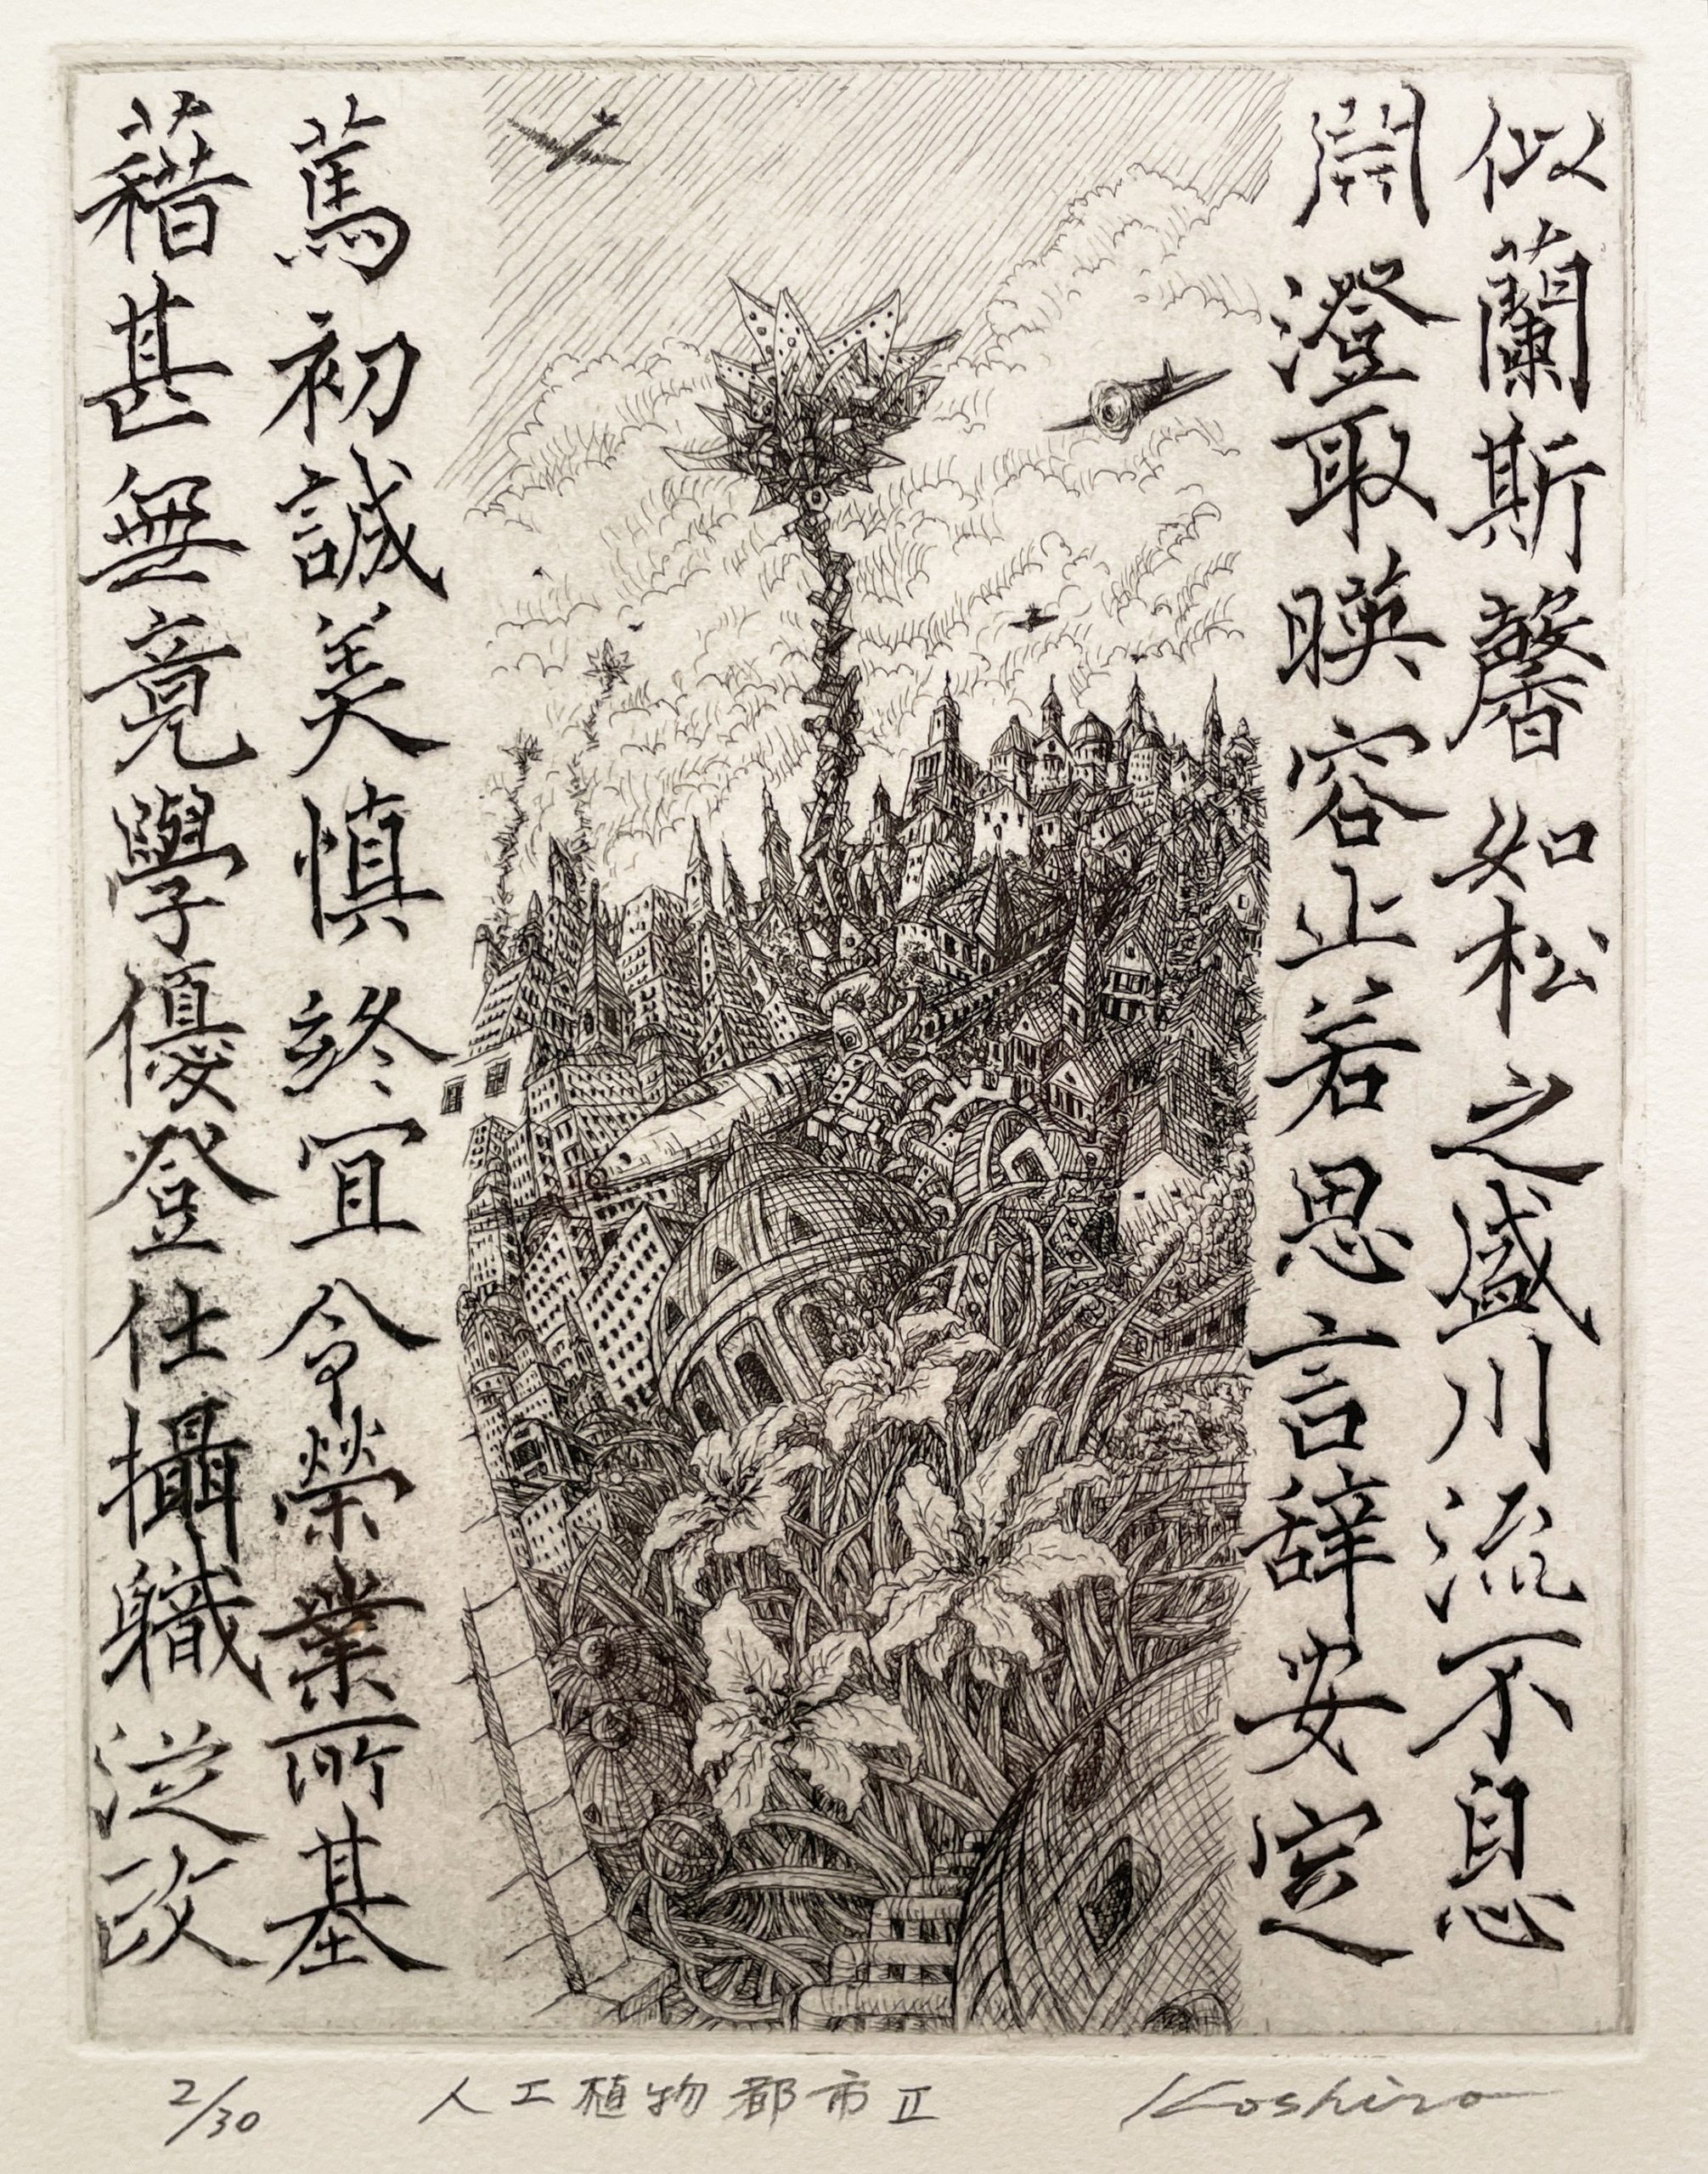 似蘭斯馨如松之盛川流不息
淵澄取暎容止若思言辞安定
篤初誠美慎終冝令榮業所基
藉甚無竟學優登仕攝職從政
2/30 人工植物都市II Koshiro